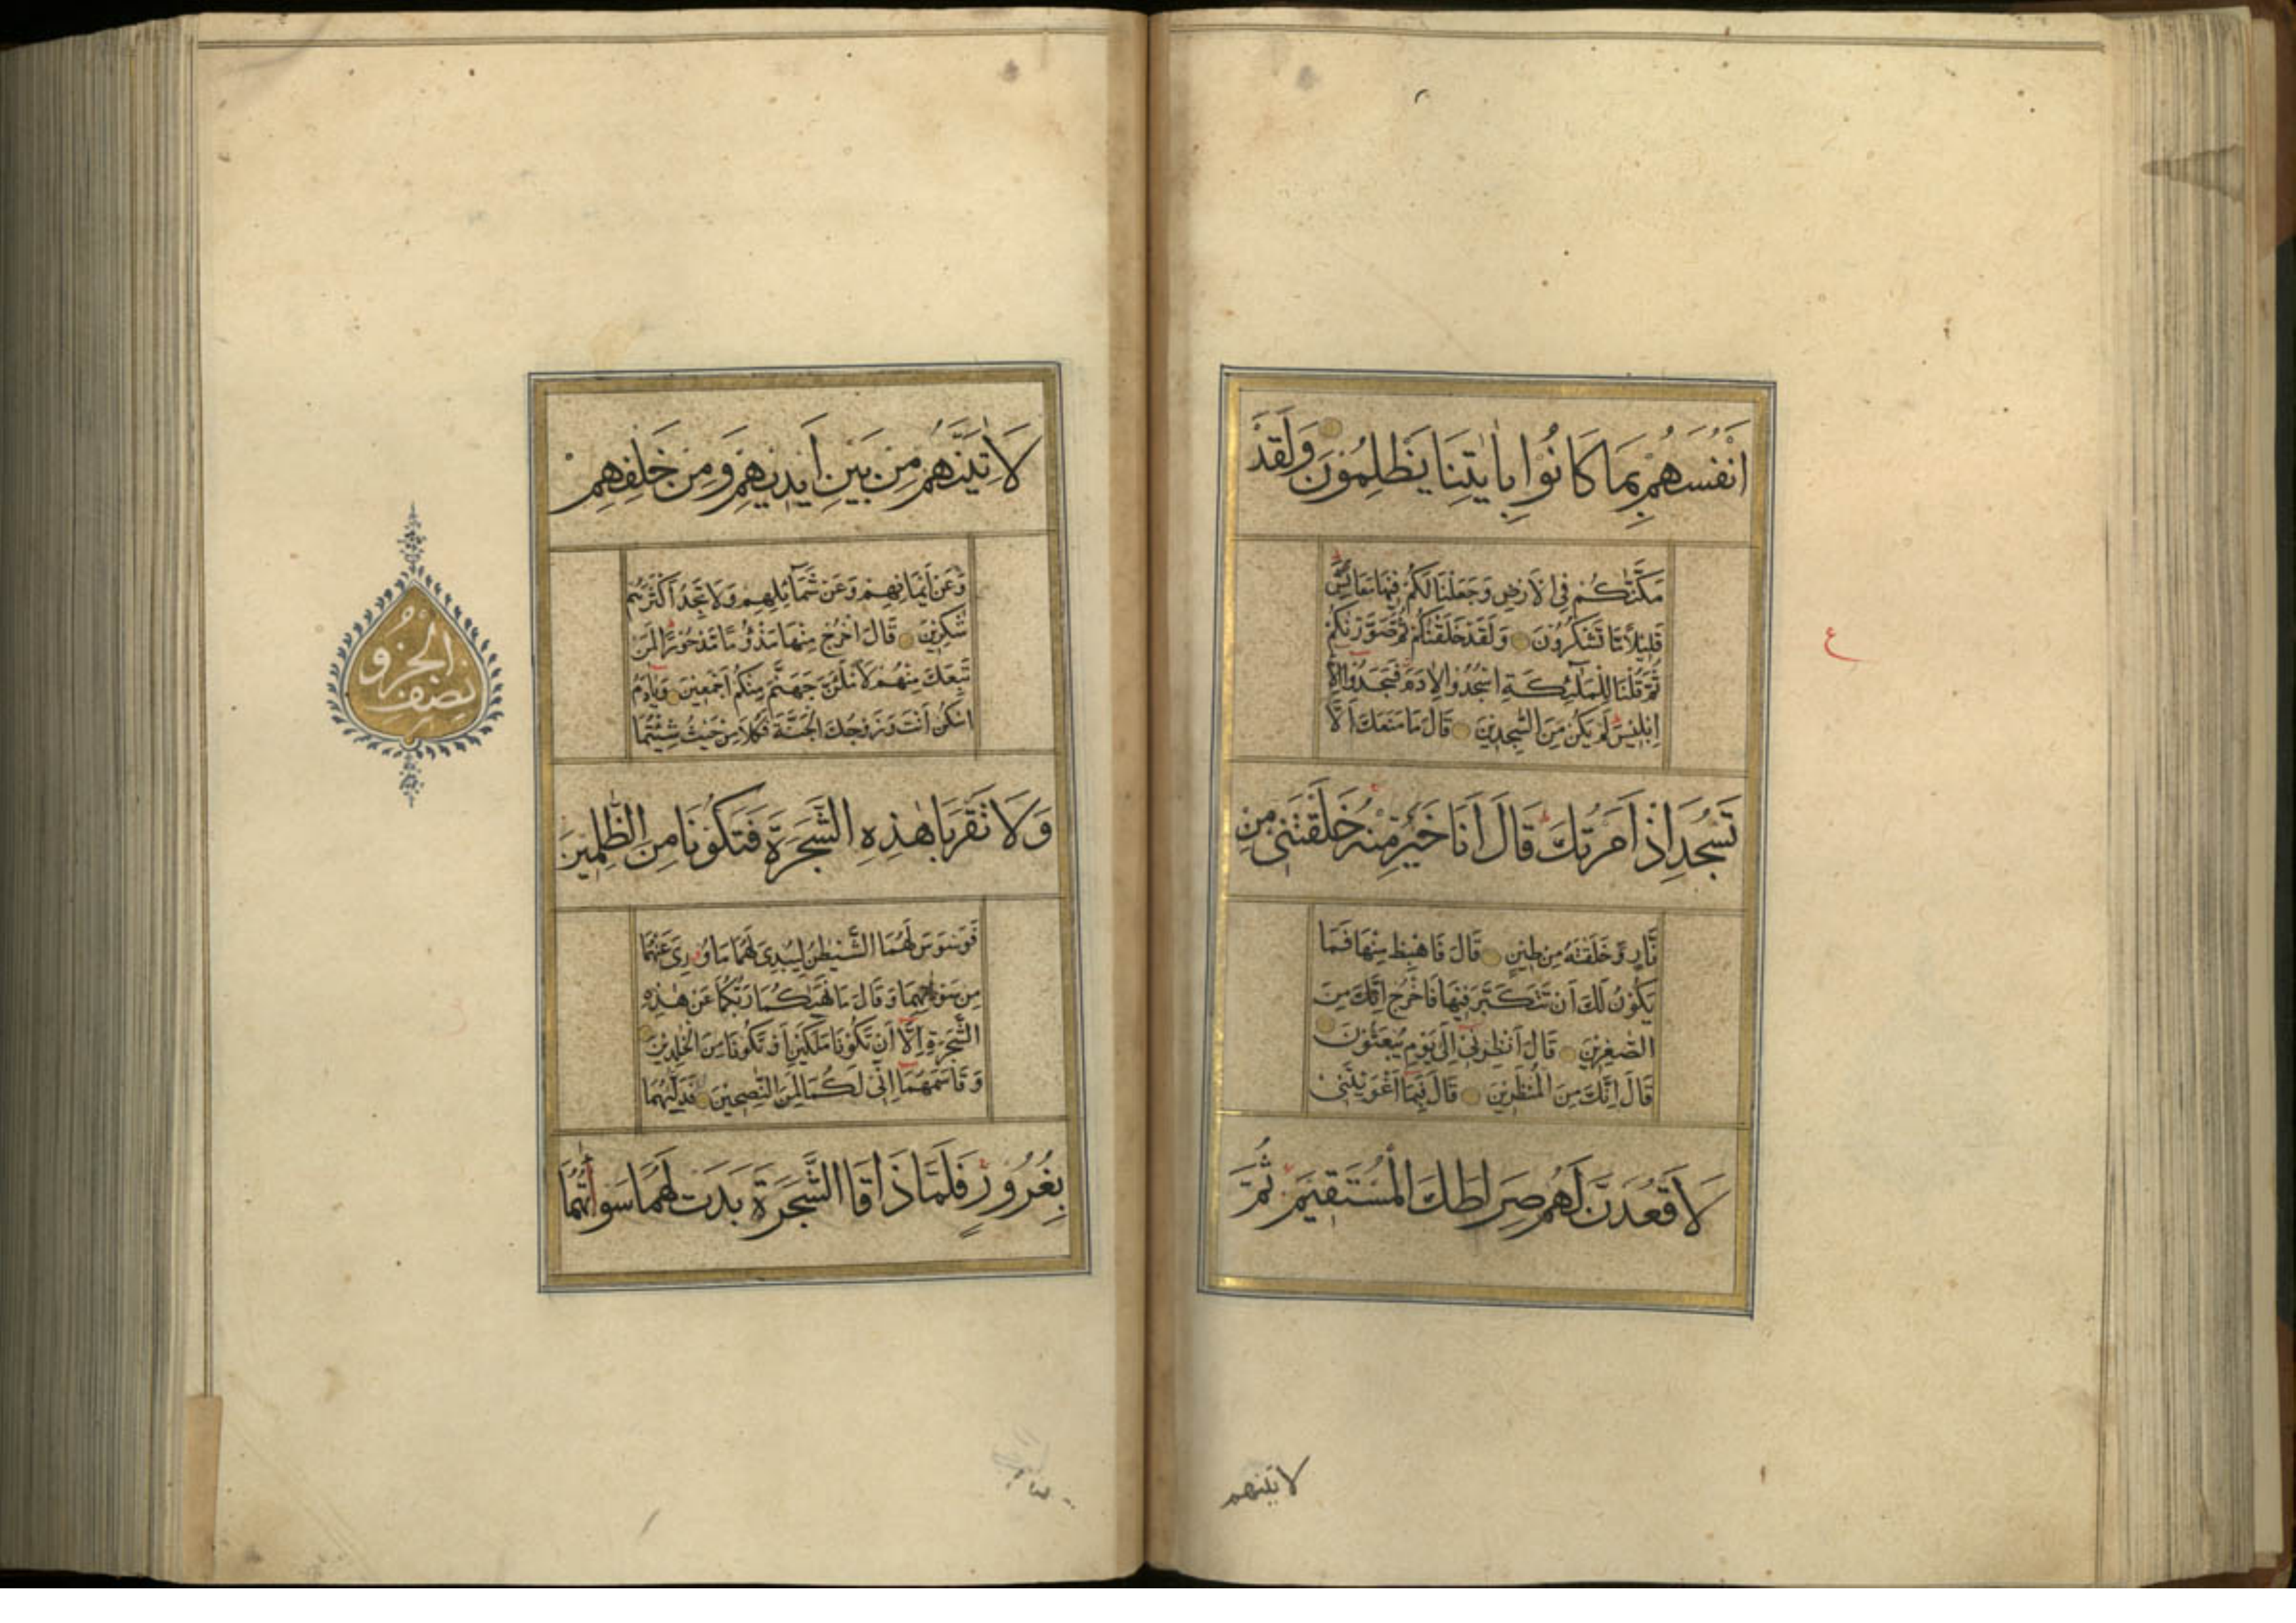 اَنْفُسَهُمْ بِمَا كَانُوْا بِاٰيٰتِنَا يَظْلِمُوْنَ وَلَقَدْ
مَكَّنّٰكُمْ فِى الْاَرْضِ وَجَعَلْنَا لَكُمْ فِيْهَا مَعَايِشَ
قَلِيْلًا مَّا تَشْكُرُوْنَ وَلَقَدْ خَلَقْنٰكُمْ ثُمَّ صَوَّرْنٰكُمْ
ثُمَّ قُلْنَا لِلْمَلٰٓئِكَةِ اسْجُدُوْا لِاٰدَمَ فَسَجَدُوْٓا اِلَّآ
اِبْلِيْسَ لَمْ يَكُنْ مِنَ السّٰجِدِيْنَ قَالَ مَا مَنَعَكَ اَلَّا
تَسْجُدَ اِذْ اَمَرْتُكَ قَالَ اَنَا خَيْرٌ مِّنْهُ خَلَقْتَنِىْ مِنْ
نَّارٍ وَّخَلَقْتَهُ مِنْ طِيْنٍ قَالَ فَاهْبِطْ مِنْهَا فَمَا
يَكُوْنُ لَكَ اَنْ تَتَكَبَّرَ فِيْهَا فَاخْرُجْ اِنَّكَ مِنَ
الصّٰغِرِيْنَ قَالَ اَنْظِرْنِىْٓ اِلٰى يَوْمِ يُبْعَثُوْنَ
قَالَ اِنَّكَ مِنَ الْمُنْظَرِيْنَ قَالَ فَبِمَآ اَغْوَيْتَنِىْ
لَاَقْعُدَنَّ لَهُمْ صِرَاطَكَ الْمُسْتَقِيْمَ ثُمَّ
ع
لاتينهم
لَاٰتِيَنَّهُمْ مِنْ بَيْنِ اَيْدِيْهِمْ وَمِنْ خَلْفِهِمْ
وَعَنْ اَيْمَانِهِمْ وَعَنْ شَمَآئِلِهِمْ وَلَا تَجِدُ اَكْثَرَهُمْ
شٰكِرِيْنَ قَالَ اخْرُجْ مِنْهَا مَذْءُوْمًا مَّدْحُوْرًا لَمَنْ
تَبِعَكَ مِنْهُمْ لَاَمْلَئَنَّ جَهَنَّمَ مِنْكُمْ اَجْمَعِيْنَ وَيٰٓاٰدَمُ
اسْكُنْ اَنْتَ وَزَوْجُكَ الْجَنَّةَ فَكُلَا مِنْ حَيْثُ شِئْتُمَا
وَلَا تَقْرَبَا هٰذِهِ الشَّجَرَةَ فَتَكُوْنَا مِنَ الظّٰلِمِيْنَ
فَوَسْوَسَ لَهُمَا الشَّيْطٰنُ لِيُبْدِىَ لَهُمَا مَا وٗرِىَ عَنْهُمَا
مِنْ سَوْاٰتِهِمَا وَقَالَ مَا نَهٰىكُمَا رَبُّكُمَا عَنْ هٰذِهِ
الشَّجَرَةِ اِلَّآ اَنْ تَكُوْنَا مَلَكَيْنِ اَوْ تَكُوْنَا مِنَ الْخٰلِدِيْنَ
وَقَاسَمَهُمَآ اِنِّىْ لَكُمَا لَمِنَ النّٰصِحِيْنَ فَدَلّٰىهُمَا
بِغُرُوْرٍ فَلَمَّا ذَاقَا الشَّجَرَةَ بَدَتْ لَهُمَا سَوْاٰتُهُمَا
نصف الجزو